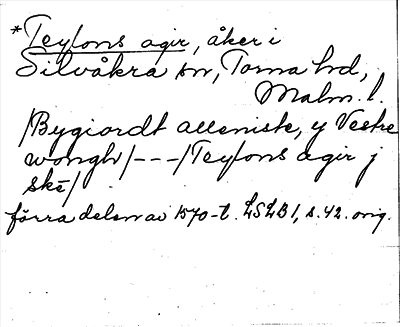 *Teylons agir, åker i
Silvåkra sn, Torna hd,
Malm. l.
/Bygiordt alleniste, y Vestre
wongh/---/Teylons agir j
skē/
förra delen av 1570-t. LSLB1, s. 42. orig.